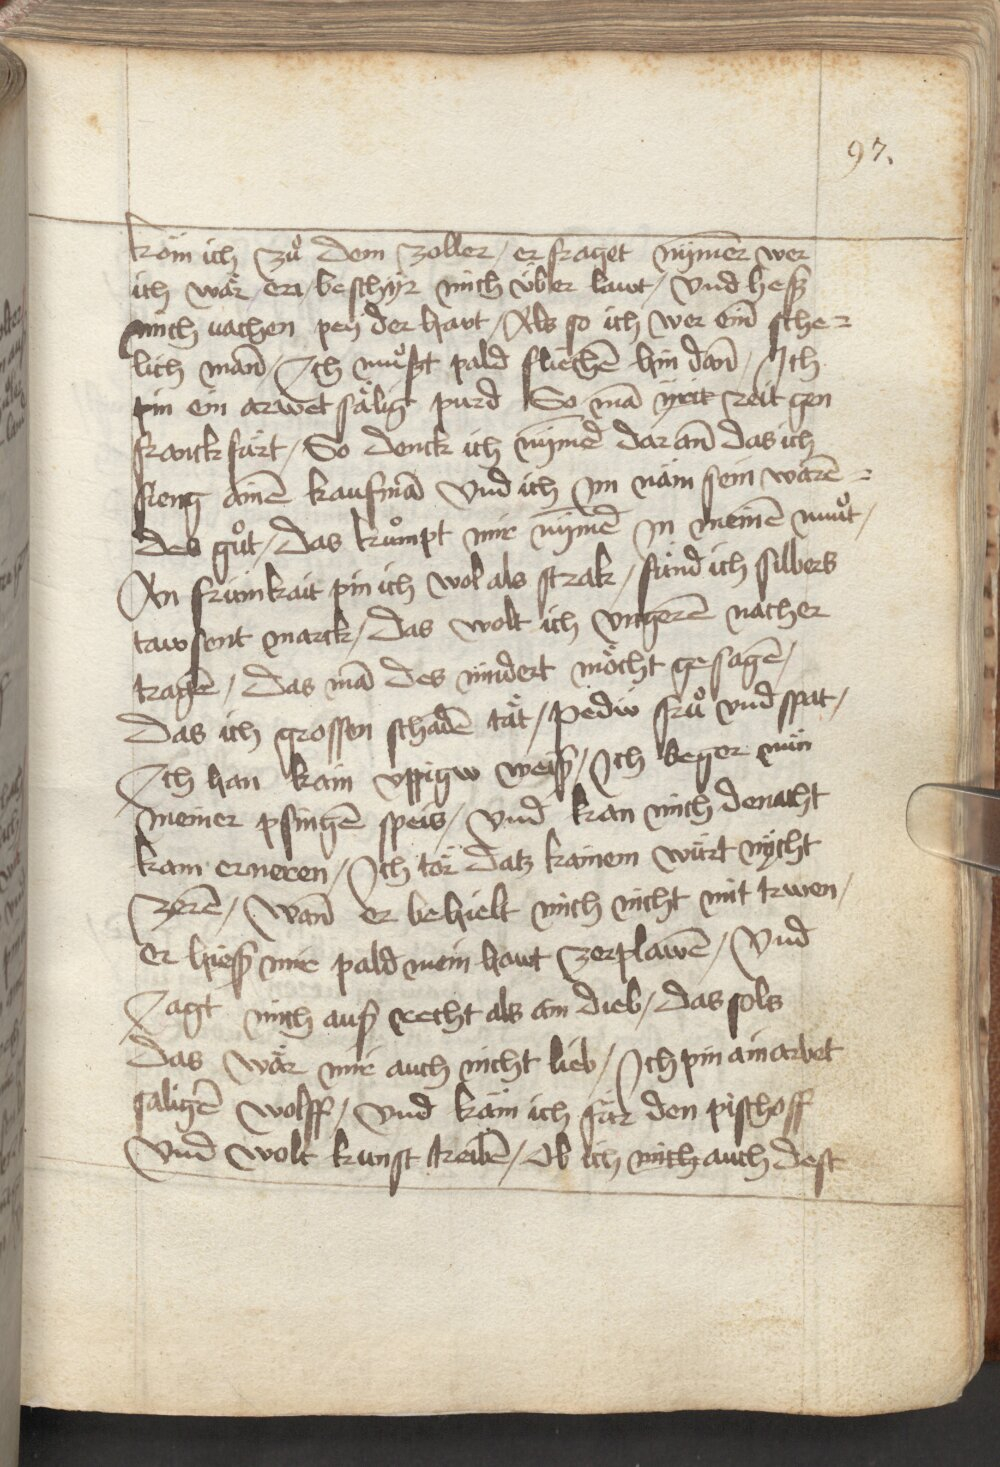 97.
köm ich zů dem zoller / er fraget nymer̄ wer
ich wär / era beschyr mich über lawt / vnd hesß
mich uachen pey der hant / Als so ich wer ein̄ sche=
lich man̄ / Ich můst pald fliechē hin dan̄ / Ich
pin ein arwet sälig purd So mā reit gen
franckfürt / So denck ich nymer̄ dar an̄ das ich
fieng ainē kaufmā vnd ich Im näm sein warē =
des gůt / das kůmpt mir nymer̄ In meinē můt /
An frümkait pin ich wol als strak / fünd ich silbers
tawsent marck / das wolt ich vngerē nacher
tragē / das mā des nindert möcht gesagē /
Das ich grossen schadē tät / pediw frů vnd spat /
Ich han kain vppigw weiß / Ich beger nün
meiner pfingē speis / vnd kan mich denacht
kam erneren / Ich tör datz kainem würt nycht
zerē / wan̄ er behielt mich nicht mit trwen /
er hiesß mir pald mein hawt zerplawē / vnd
Jagt mich auß recht als ain dieb / das sols
Das wär mir auch nicht lieb / Ich pin ain arbet
säligē wolff / vnd käm ich für den pischoff
vnd wolt kunst treibē / Ob ich mich auch dest